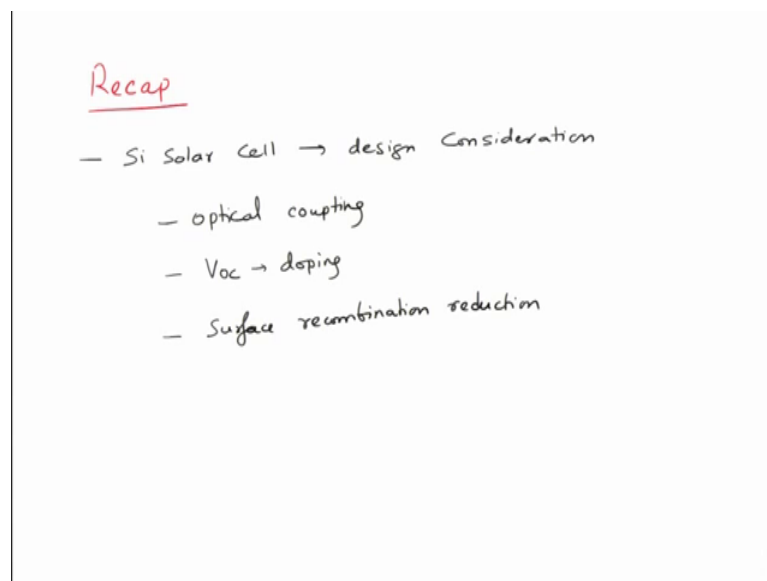 Recap
— Si Solar Cell → design Consideration
— optical coupting
— Voc → doping
— Surface recombination reduction